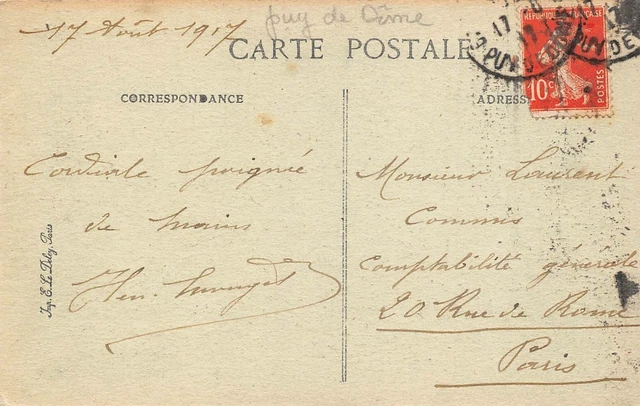 17 Août 1917
puy de Dôme
CARTE POSTALE
CORRESPONDANCE
ADRESSE
RÉPUBLIQUE FRANÇAISE
10c
POSTES
PUY DE DOME
17
Cordiale poignée
de mains
Monsieur Laurent
Commis
Comptabilité générale
20 Rue de Rome
Paris
Imp. E. Le Deley, Paris